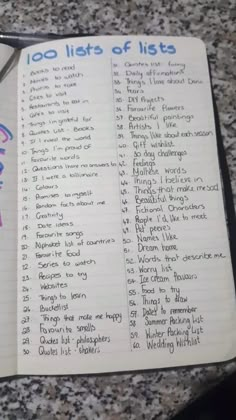 100 lists of lists
1. Books to read
2. Movies to watch
3. Photos to take
4. Cities to visit
5. Restaurants to eat in
6. Gifts to
7. Things I'm grateful for
8. Quotes list - Books
9. If I ruled the world
10. Things I'm proud of
11. Favourite words
12. Questions I have no answers to
13. If I were a billionaire
14. Colours
15. Promises to myself
16. Random facts about me
17. Creativity
18. Date ideas
19. Favourite songs
20. Alphabet list of countries
21. Favourite food
22. Series to watch
23. Recipes to try
24. Websites
25. Things to learn
26. Bucketlist
27. Things that make me happy
28. Favourite smells
29. Quotes list - philosophers
30. Quotes list -
31. Quotes list - funny
32. Daily affirmations
33. Things I love about
34. Fears
35. DIY Projects
36. Favourite flowers
37. Beautiful paintings
38. Artists I like
39. Things I like about each season
40. Gift wishlist
41. 30 day challenges
42. Feelings
43. words
44. Things I believe in
45. Things that make me sad
46. Beautiful things
47. Fictional Characters
48. People I'd like to meet
49. Pet peeves
50. Names I like
51. Dream home
52. Words that describe me
53. Worry list
54. Ice cream flavours
55. Food to try
56. Things to draw
57. Dates to remember
58. Summer Packing List
59. Winter Packing List
60. Wedding Wishlist